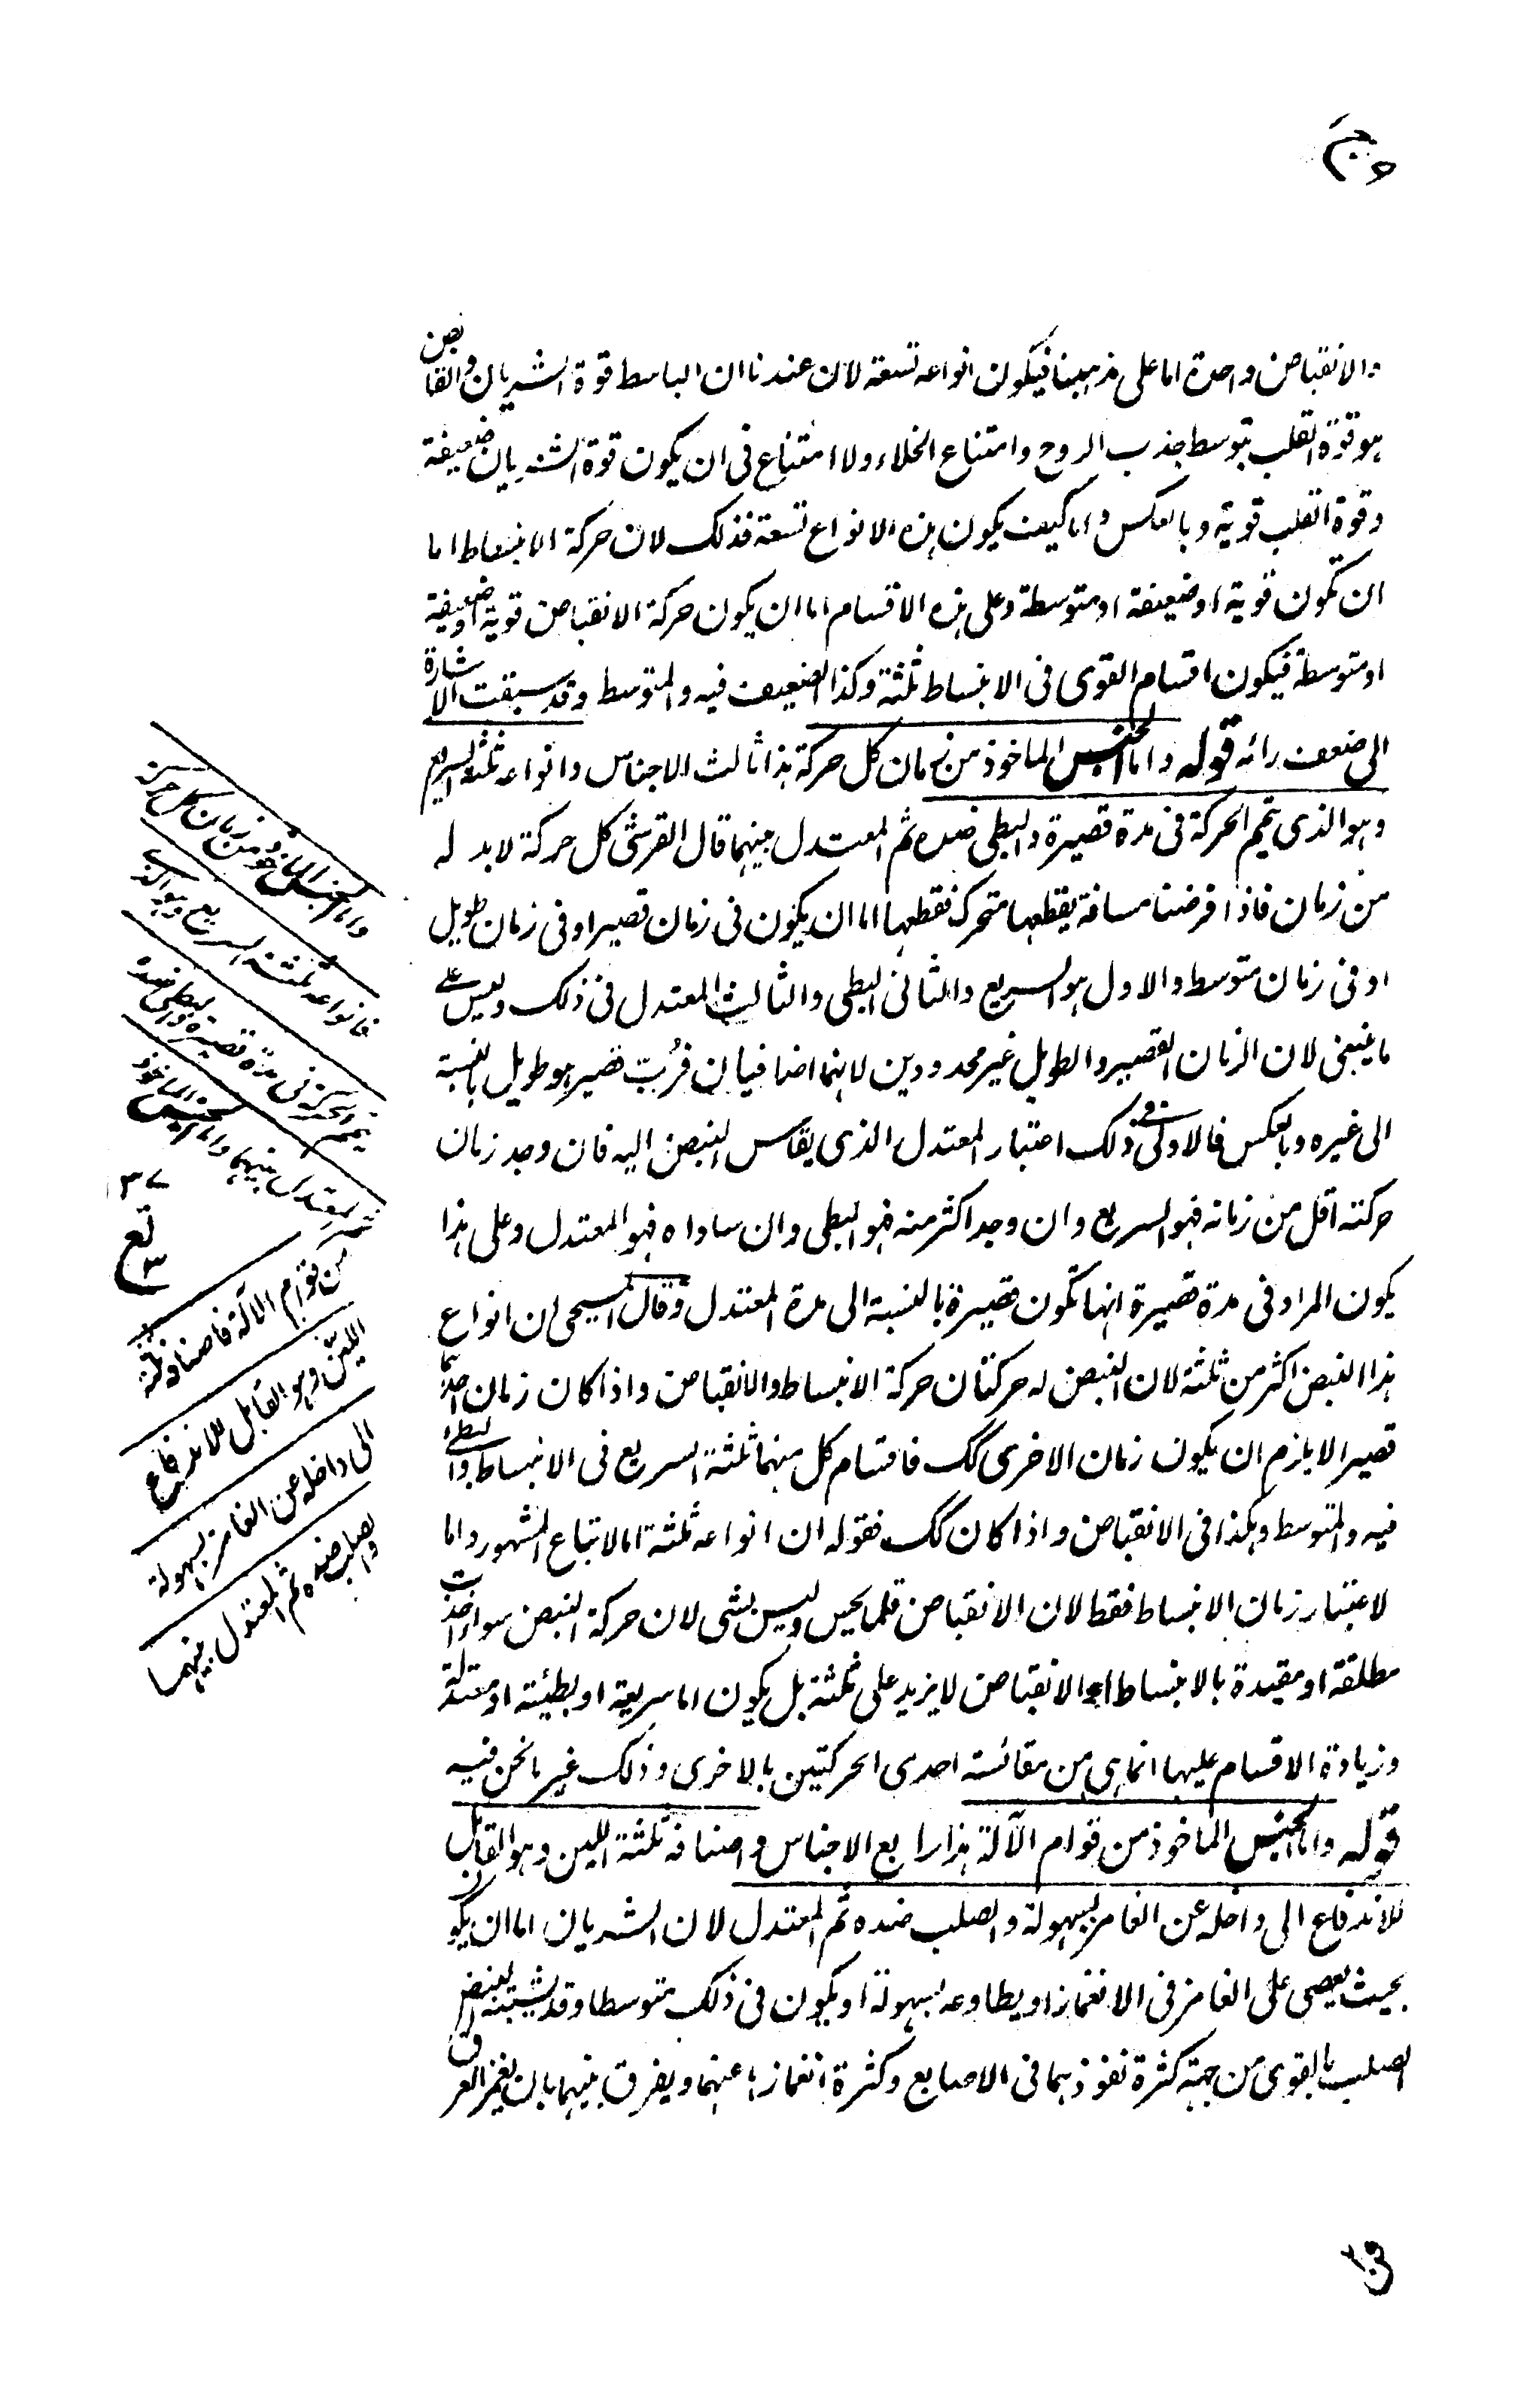 والانقباض واحدة اما على مذهبنا فيكون انواعه تسعة لان عندنا ان الباسط قوة الشريان والقابض
هو قوة القلب بتوسط جذب الروح وامتناع الخلاء ولا امتناع فى ان يكون قوة الشريان ضعيفة
وقوة القلب قوية وبالعكس واما كيف يكون هذه الانواع تسعة فذلك لان حركة الانبساط اما
ان تكون قوية او ضعيفة او متوسطة وعلى هذه الاقسام اما ان يكون حركة الانقباض قوية او ضعيفة
او متوسطة فيكون اقسام القوى فى الانبساط ثلثة وكذا الضعيف فيه والمتوسط وقد سبقت الاشارة
الى ضعف رائه قوله واما الجنس الماخوذ من زمان كل حركة هذا ثالث الاجناس وانواعه ثلثة السريع
وهو الذى يتمم الحركة فى مدة قصيرة والبطى ضده ثم المعتدل بينهما قال القرشى كل حركة لابد له
من زمان فاذا فرضنا مسافة يقطعها متحرك فقطعها اما ان يكون فى زمان قصير او فى زمان طويل
او فى زمان متوسط والاول هو السريع والثانى البطى والثالث المعتدل فى ذلك وليس على
ما ينبغى لان الزمان القصير والطويل غير محدودين لانهما اضافيان فرُبّ قصير هو طويل بالنسبة
الى غيره وبالعكس فالاولى فى ذلك اعتبار المعتدل الذى يقاس النبض اليه فان وجد زمان
حركته اقل من زمانه فهو السريع وان وجد اكثر منه فهو البطى وان ساواه فهو المعتدل وعلى هذا
يكون المراد فى مدة قصيرة انها تكون قصيرة بالنسبة الى مدة المعتدل وقال المسيحى ان انواع
هذا النبض اكثر من ثلثة لان النبض له حركتان حركة الانبساط والانقباض واذا كان زمان احدهما
قصيرا لا يلزم ان يكون زمان الاخرى كك فاقسام كل منهما ثلثة السريع فى الانبساط والبطى
فيه والمتوسط وهكذا فى الانقباض واذا كان كك فقوله ان انواعه ثلثة اما لاتباع المشهور واما
لاعتبار زمان الانبساط فقط لان الانقباض قلما يحس وليس بشى لان حركة النبض سواء اخذت
مطلقة او مقيدة بالانبساط او الانقباض لا يزيد على ثلثة بل يكون اما سريعة او بطيئة او معتدلة
وزيادة الاقسام عليها انما هى من مقائسة احدى الحركتين بالاخرى وذلك غير ما نحن فيه
قوله واما الجنس الماخوذ من قوام الآلة هذا رابع الاجناس واصنافه ثلثة اللين وهو القابل
للاندفاع الى داخله عن الغامز بسهولة والصلب ضده ثم المعتدل لان الشريان اما ان يكون
بحيث يعصى على الغامز فى الانغماز او يطاوعه بسهولة او يكون فى ذلك متوسطا وقد يشتبه النبض
الصلب بالقوى من جهة كثرة نفوذهما فى الاصابع وكثرة انغمازها عنهما ويفرق بينهما بان يغمز العرق
واما الجنس الماخوذ من زمان كل حركة
فانواعه ثلثة السريع وهو الذى
يتمم الحركة فى مدة قصيرة والبطى ضده
ثم المعتدل بينهما واما الجنس الماخوذ
من قوام الآلة فاصنافه ثلثة
اللين وهو القابل للاندفاع
الى داخله عن الغامز بسهولة
والصلب ضده ثم المعتدل بينهما